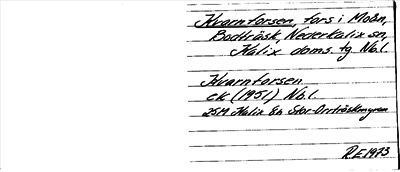 Kvarnforsen, fors i Moån,
Bodträsk, Nederkalix sn,
Kalix doms. tg Nb.l.
Kvarnforsen
ek (1951) Nb.l.
25M Kalix 6a Stor-Orrträskmyren
R.E 1973